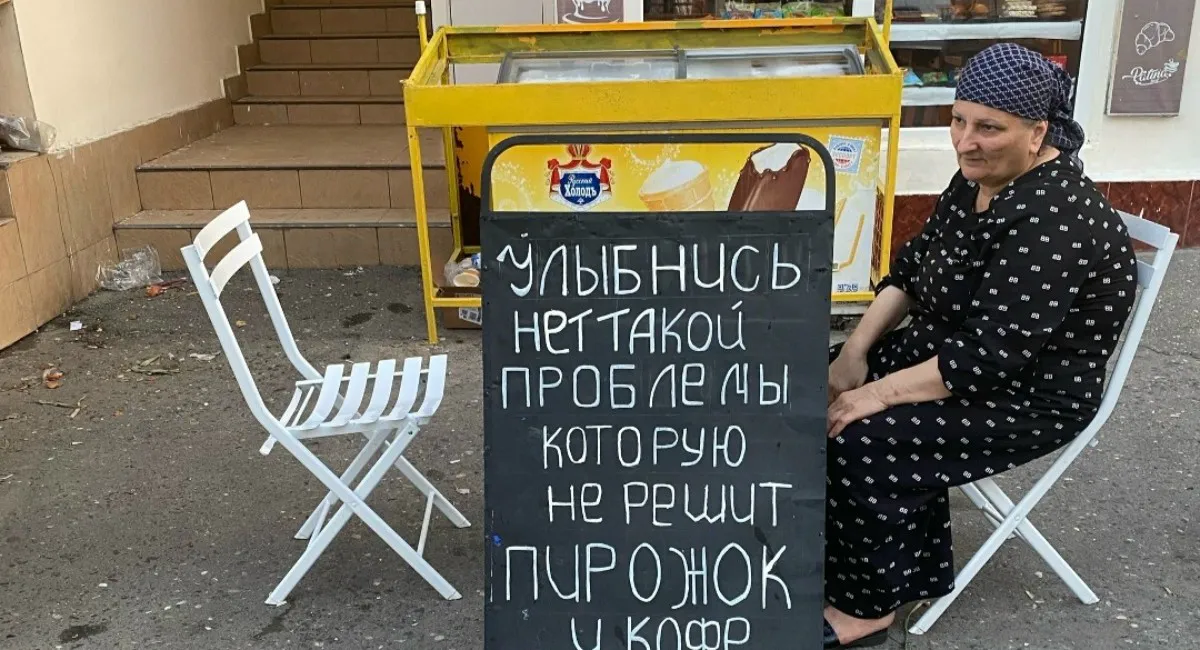 Patina
Русский
Холодъ
УЛЫБНИСЬ
НЕТ ТАКОЙ
ПРОБЛЕМЫ
КОТОРУЮ
НЕ РЕШИТ
ПИРОЖОК
И КОФЕ